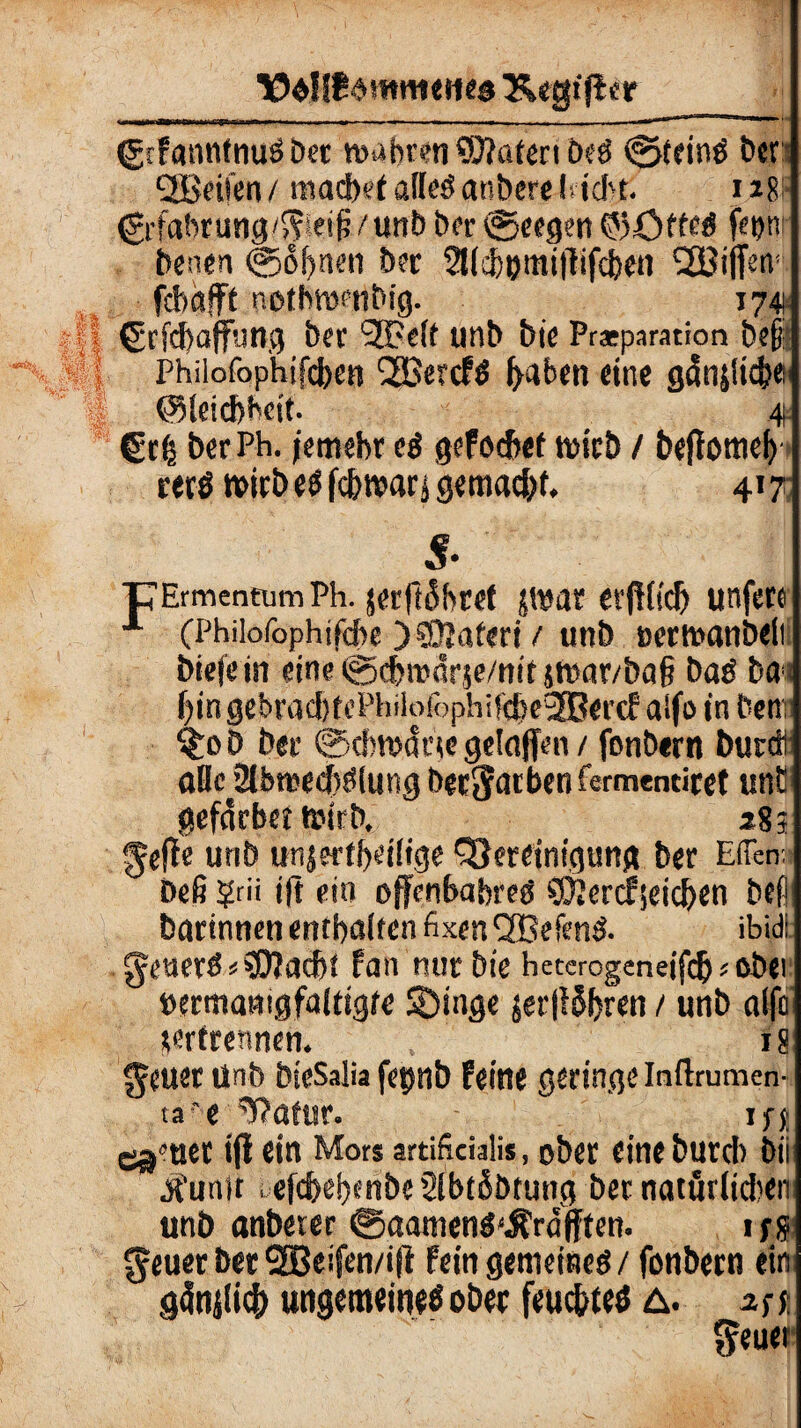 Vollkommenes Register
Erkanntnus der wahren Materi des Steins der
Weisen / machet alles andere leicht. 128
Erfahrung / Fleiß / und der Seegen GOttes seyn
denen Söhnen der Alchymistischen Wissen-
schafft nothwendig. 174
Erschaffung der Welt und die Præparation deß
Philosophischen Wercks haben eine gäntzliche
Gleichheit. 4
Ertz der Ph. jemehr es gekochet wird / desto meh-
rers wird es schwartz gemacht. 417
F.
FErmentum Ph. zerstöhret zwar erstlich unsere
(Philosophische) Materi / und verwandelt
diese in eine Schwärze / nit zwar / daß das da-
hin gebrachte Philosophische Werck also in dem
Tod der Schwärze gelassen / sondern durch
alle Abwechslung der Farben fermentiret und
gefärbet wird. 283
Feste und unzertheilige Vereinigung der Essen-
deß ♀rii ist ein offenbahres Merckzeichen deß
darinnen enthalten fixen Wesens. ibid.
Feuers-Macht kan nur die heterogeneisch-oder
vermanigfaltigte Dinge zerstöhren / und also
zertrennen. 18
Feuer und die Salia seynd keine geringe Instrumen-
ta Natur. 155
Feuer ist ein Mors artificialis, oder eine durch die
Kunst geschehende Abtödtung der natürlichen
und anderer Saamens-Kräfften. 158
Feuer der Weisen / ist kein gemeines / sondern ein
gäntzlich ungemeines oder feuchtes △. 255
Feuer